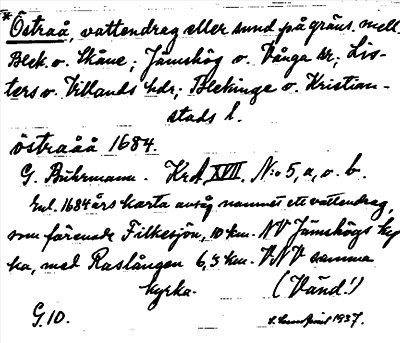 *Östraå, vattendrag eller sund på gräns. mell.
Blek. o. Skåne; Jämshög o. Vånga sr; Lis-
ters o. Villands hdr; Blekinge o. Kristian-
stads l.
östraåå 1684.
G. Buhrmann. Krd XVII. N:o 5, a, o. b.
Enl. 1684 års karta avsåg namnet ett vattendrag,
som förenade Filkesjön, 10 km. NV Jämshögs kyr
ka, med Raslången 6,5 km. VNV samma
kyrka. (Vänd!)
G.10. 1937.